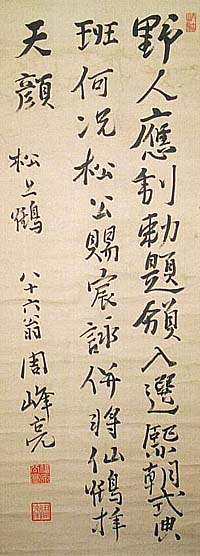 野人應制勅題頒入選熙朝式典
班何況松公賜宸詠併將仙鶴拝
天顔
松上鶴
八十六翁周峰亮